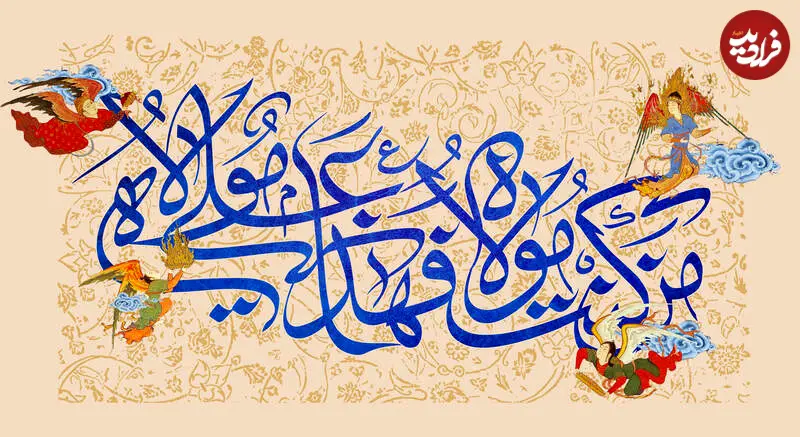 من كنت مولاه فهذا علي مولاه
فرادید